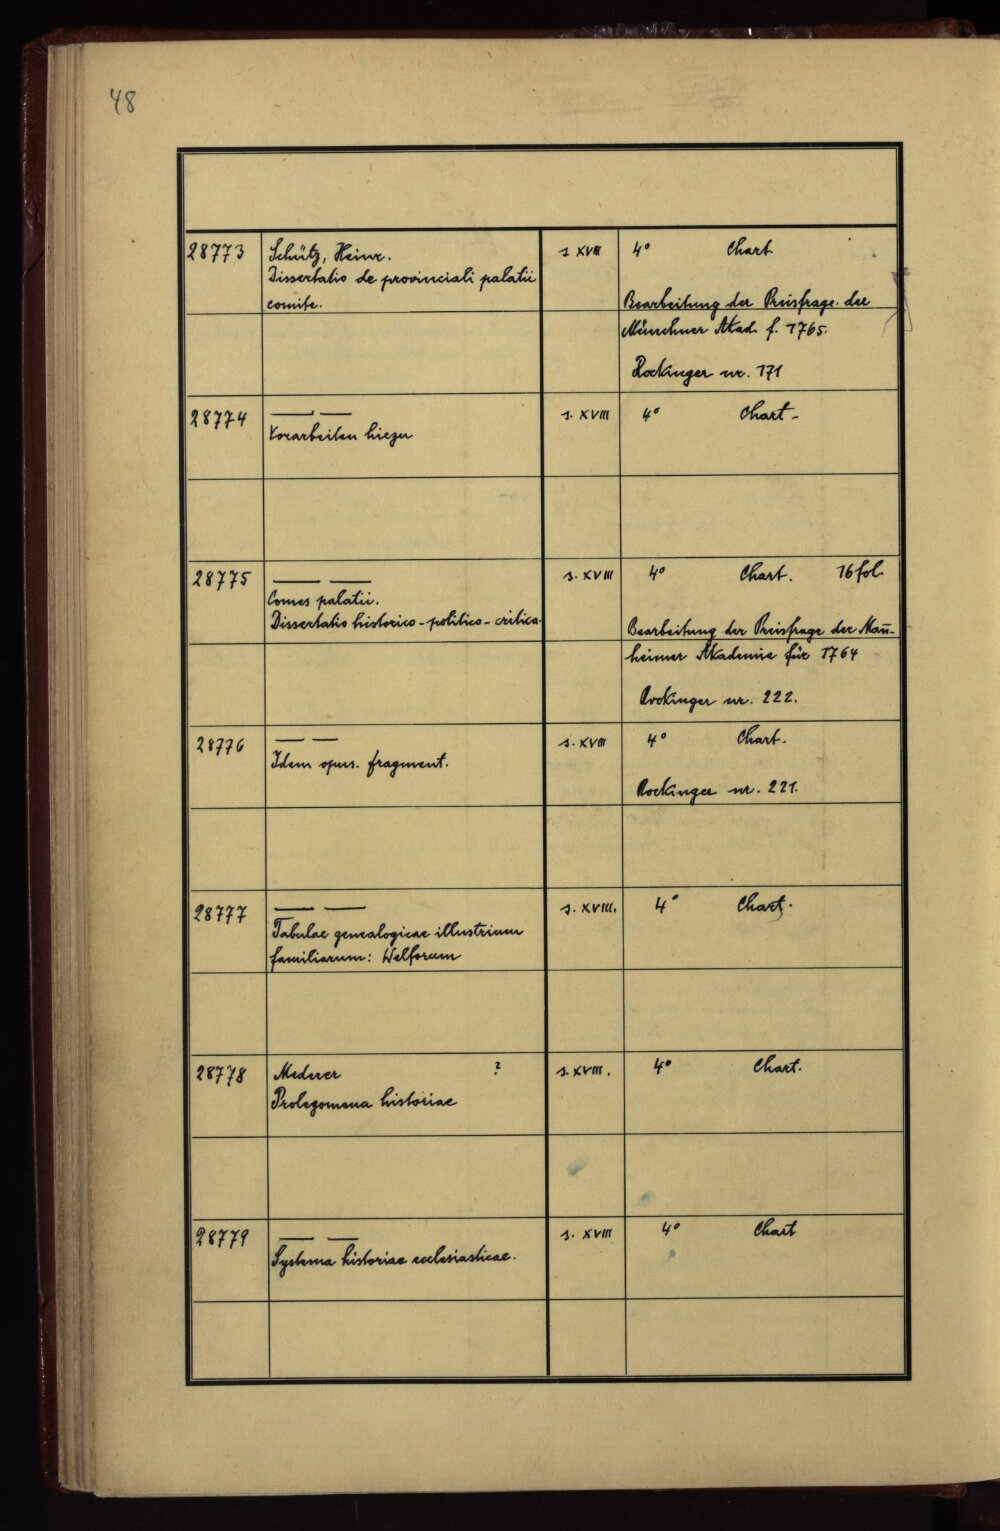 48
28773 Schütz, Heinr. s. XVIII 4° Chart.
Dissertatio de provinciali palatii
comite. Bearbeitung der Preisfrage der
Münchner Akad. f. 1765.
Rockinger nr. 171
28774 — — s. XVIII 4° Chart.
Vorarbeiten hiezu
28775 — — s. XVIII 4° Chart. 16 fol.
Comes palatii.
Dissertatio historico-politico-critica. Bearbeitung der Preisfrage der Man̄-
heimer Akademie für 1764
Rockinger nr. 222.
28776 — — s. XVIII 4° Chart.
Idem opus. fragment.
Rockinger nr. 221.
28777 — — s. XVIII. 4° Chart.
Tabulae genealogicae illustrium
familiarum: Welforum
28778 Mederer ? s. XVIII. 4° Chart.
Prolegomena historiae
28779 — — s. XVIII 4° Chart
Systema historiae ecclesiasticae.